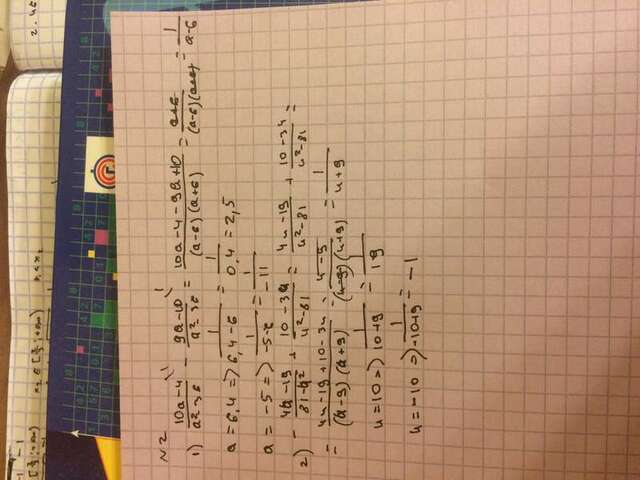 №2
1) (10a-4)/(a²-36) - (9a-10)/(a²-36) = (10a-4-9a+10)/((a-6)(a+6)) = (a+6)/((a-6)(a+6)) = 1/(a-6)
a = 6,4 => 1/(6,4-6) = 1/0,4 = 2,5
a = -5 => 1/(-5-6) = 1/-11
2) - (4u-19)/(81-u²) + (10-3u)/(u²-81) = (4u-19)/(u²-81) + (10-3u)/(u²-81) =
= (4u-19+10-3u)/((u-9)(u+9)) = (u-9)/((u-9)(u+9)) = 1/(u+9)
u=10 => 1/(10+9) = 1/19
u=-10 => 1/(-10+9) = -1